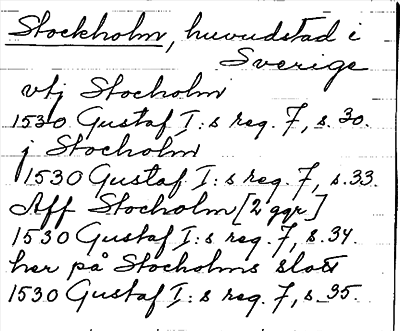 Stockholm, huvudstad i
Sverige
vtj Stocholm
1530 Gustaf I:s reg. 7, s. 30.
j Stocholm
1530 Gustaf I:s reg. 7, s. 33.
Aff Stocholm [2 ggr]
1530 Gustaf I:s reg. 7, s. 34.
her på Stocholms slott
1530 Gustaf I:s reg. 7, s. 35.